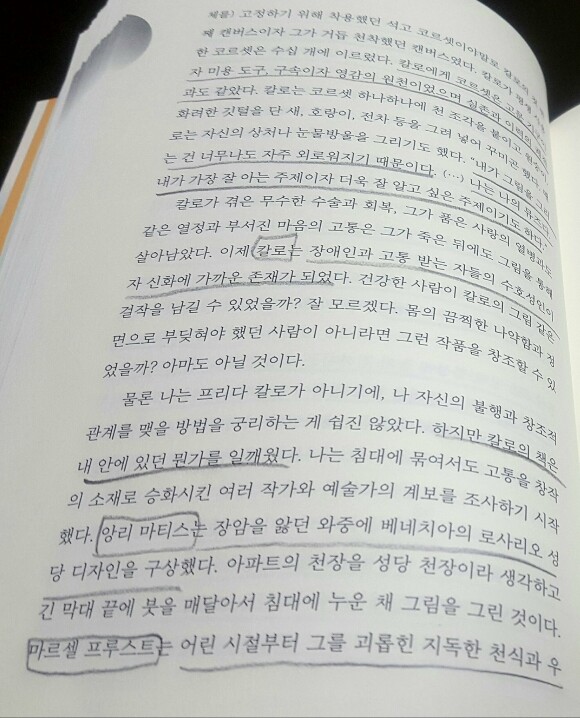 체를) 고정하기 위해 착용했던 석고 코르셋이야말로 칼로의 첫
째 캔버스이자 그가 거듭 천착했던 캔버스였다. 칼로가
한 코르셋은 수십 개에 이르렀다. 칼로에게 코르셋은
자 미용 도구, 구속이자 영감의 원천이었으며 실존과
과도 같았다. 칼로는 코르셋 하나하나에 천 조각을 붙이고
화려한 깃털을 단 새, 호랑이, 전차 등을 그려 넣어 꾸미곤 했다.
로는 자신의 상처나 눈물방울을 그리기도 했다. "내가
는 건 너무나도 자주 외로워지기 때문이다. (…) 나는 나의
내가 가장 잘 아는 주제이자 더욱 잘 알고 싶은 주제이기도 하다."
칼로가 겪은 무수한 수술과 회복, 그가 품은 사랑의 열병과도
같은 열정과 부서진 마음의 고통은 그가 죽은 뒤에도 그림을 통해
살아남았다. 이제 칼로는 장애인과 고통 받는 자들의 수호성인이
자 신화에 가까운 존재가 되었다. 건강한 사람이 칼로의 그림 같은
걸작을 남길 수 있었을까? 잘 모르겠다. 몸의 끔찍한 나약함과 정
면으로 부딪혀야 했던 사람이 아니라면 그런 작품을 창조할 수 있
었을까? 아마도 아닐 것이다.
물론 나는 프리다 칼로가 아니기에, 나 자신의 불행과 창조적
관계를 맺을 방법을 궁리하는 게 쉽진 않았다. 하지만 칼로의 책은
내 안에 있던 뭔가를 일깨웠다. 나는 침대에 묶여서도 고통을 창작
의 소재로 승화시킨 여러 작가와 예술가의 계보를 조사하기 시작
했다. 앙리 마티스는 장암을 앓던 와중에 베네치아의 로사리오 성
당 디자인을 구상했다. 아파트의 천장을 성당 천장이라 생각하고
긴 막대 끝에 붓을 매달아서 침대에 누운 채 그림을 그린 것이다.
마르셀 프루스트는 어린 시절부터 그를 괴롭힌 지독한 천식과 우